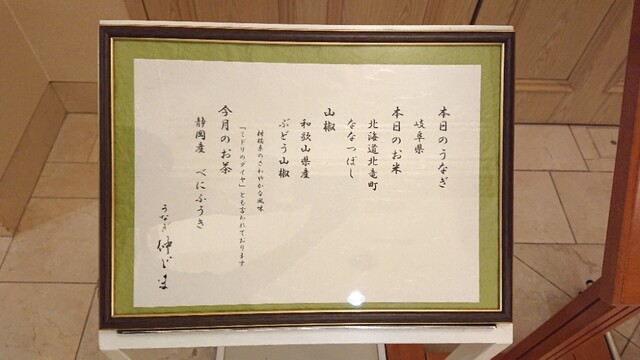 本日のうなぎ
岐阜県
本日のお米
北海道北竜町
ななつぼし
山椒
和歌山県産
ぶどう山椒
柑橘系のさわやかな風味
「ミドリのダイヤ」とも言われております
今月のお茶
静岡産　べにふうき
うなぎ 仲じま